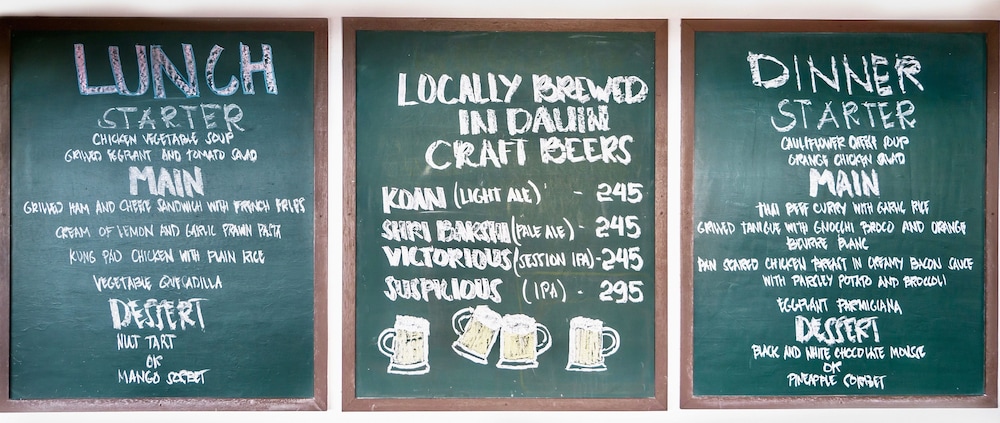 LUNCH
STARTER
CHICKEN VEGETABLE SOUP
GRILLED EGGPLANT AND TOMATO SALAD
MAIN
GRILLED HAM AND CHEESE SANDWICH WITH FRENCH FRIES
CREAM OF LEMON AND GARLIC PRAWN PASTA
KUNG PAO CHICKEN WITH PLAIN RICE
VEGETABLE QUECADILLA
DESSERT
NUT TART
OR
MANGO SORBET
LOCALLY BREWED
IN DAUIN
CRAFT BEERS
KOAN (LIGHT ALE) - 245
SHRI BAKSHI (PALE ALE) - 245
VICTORIOUS (SESSION IPA) - 245
SUSPICIOUS (IPA) - 295
DINNER
STARTER
CAULIFLOWER SOUP
ORANGE CHICKEN SALAD
MAIN
THAI BEEF CURRY WITH GARLIC RICE
GRILLED TANIGUE WITH GNOCCHI BROCO AND ORANGE
BEURRE BLANC
PAN SEARED CHICKEN BREAST IN CREAMY BACON SAUCE
WITH PARSLEY POTATO AND BROCCOLI
EGGPLANT PARMIGIANA
DESSERT
BLACK AND WHITE CHOCOLATE MOUSSE
OR
PINEAPPLE SORBET